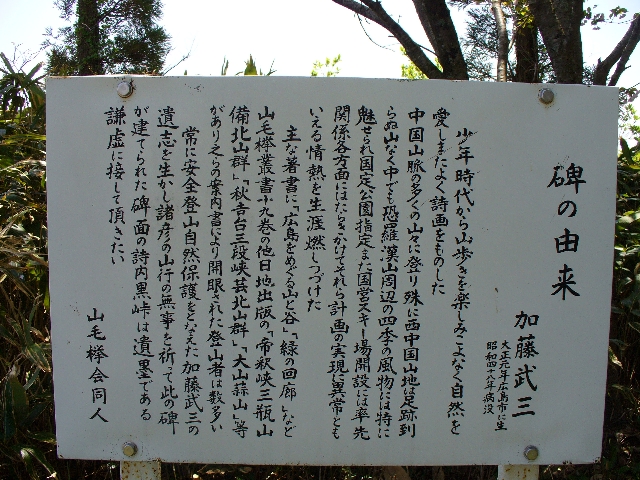 碑の由来
加藤武三
大正元年広島市に生
昭和四六年病没
少年時代から山歩きを楽しみこよなく自然を
愛しまたよく詩画をものした
中国山脈の多くの山々に登り殊に西中国山地に足跡到
らぬ山なく中でも恐羅漢山周辺の四季の風物には特に
魅せられ国定公園指定また国営スキー場開設には率先
関係各方面にはたらきかけてそれら計画の実現に異常とも
いえる情熱を生涯燃しつづけた
主な著書に「広島をめぐる山と谷」「緑の回廊」など
山毛欅叢書十九巻の他日地出版の「帝釈峡三瓶山
備北山群」「秋吉台三段峡芸北山群」「大山蒜山」等
があり之らの案内書により開眼された登山者は数多い
常に安全登山自然保護をとなえた加藤武三の
遺志を生かし諸彦の山行の無事を祈って此の碑
が建てられた碑面の詩内黒峠は遺墨である
謙虚に接して頂きたい
山毛欅会同人